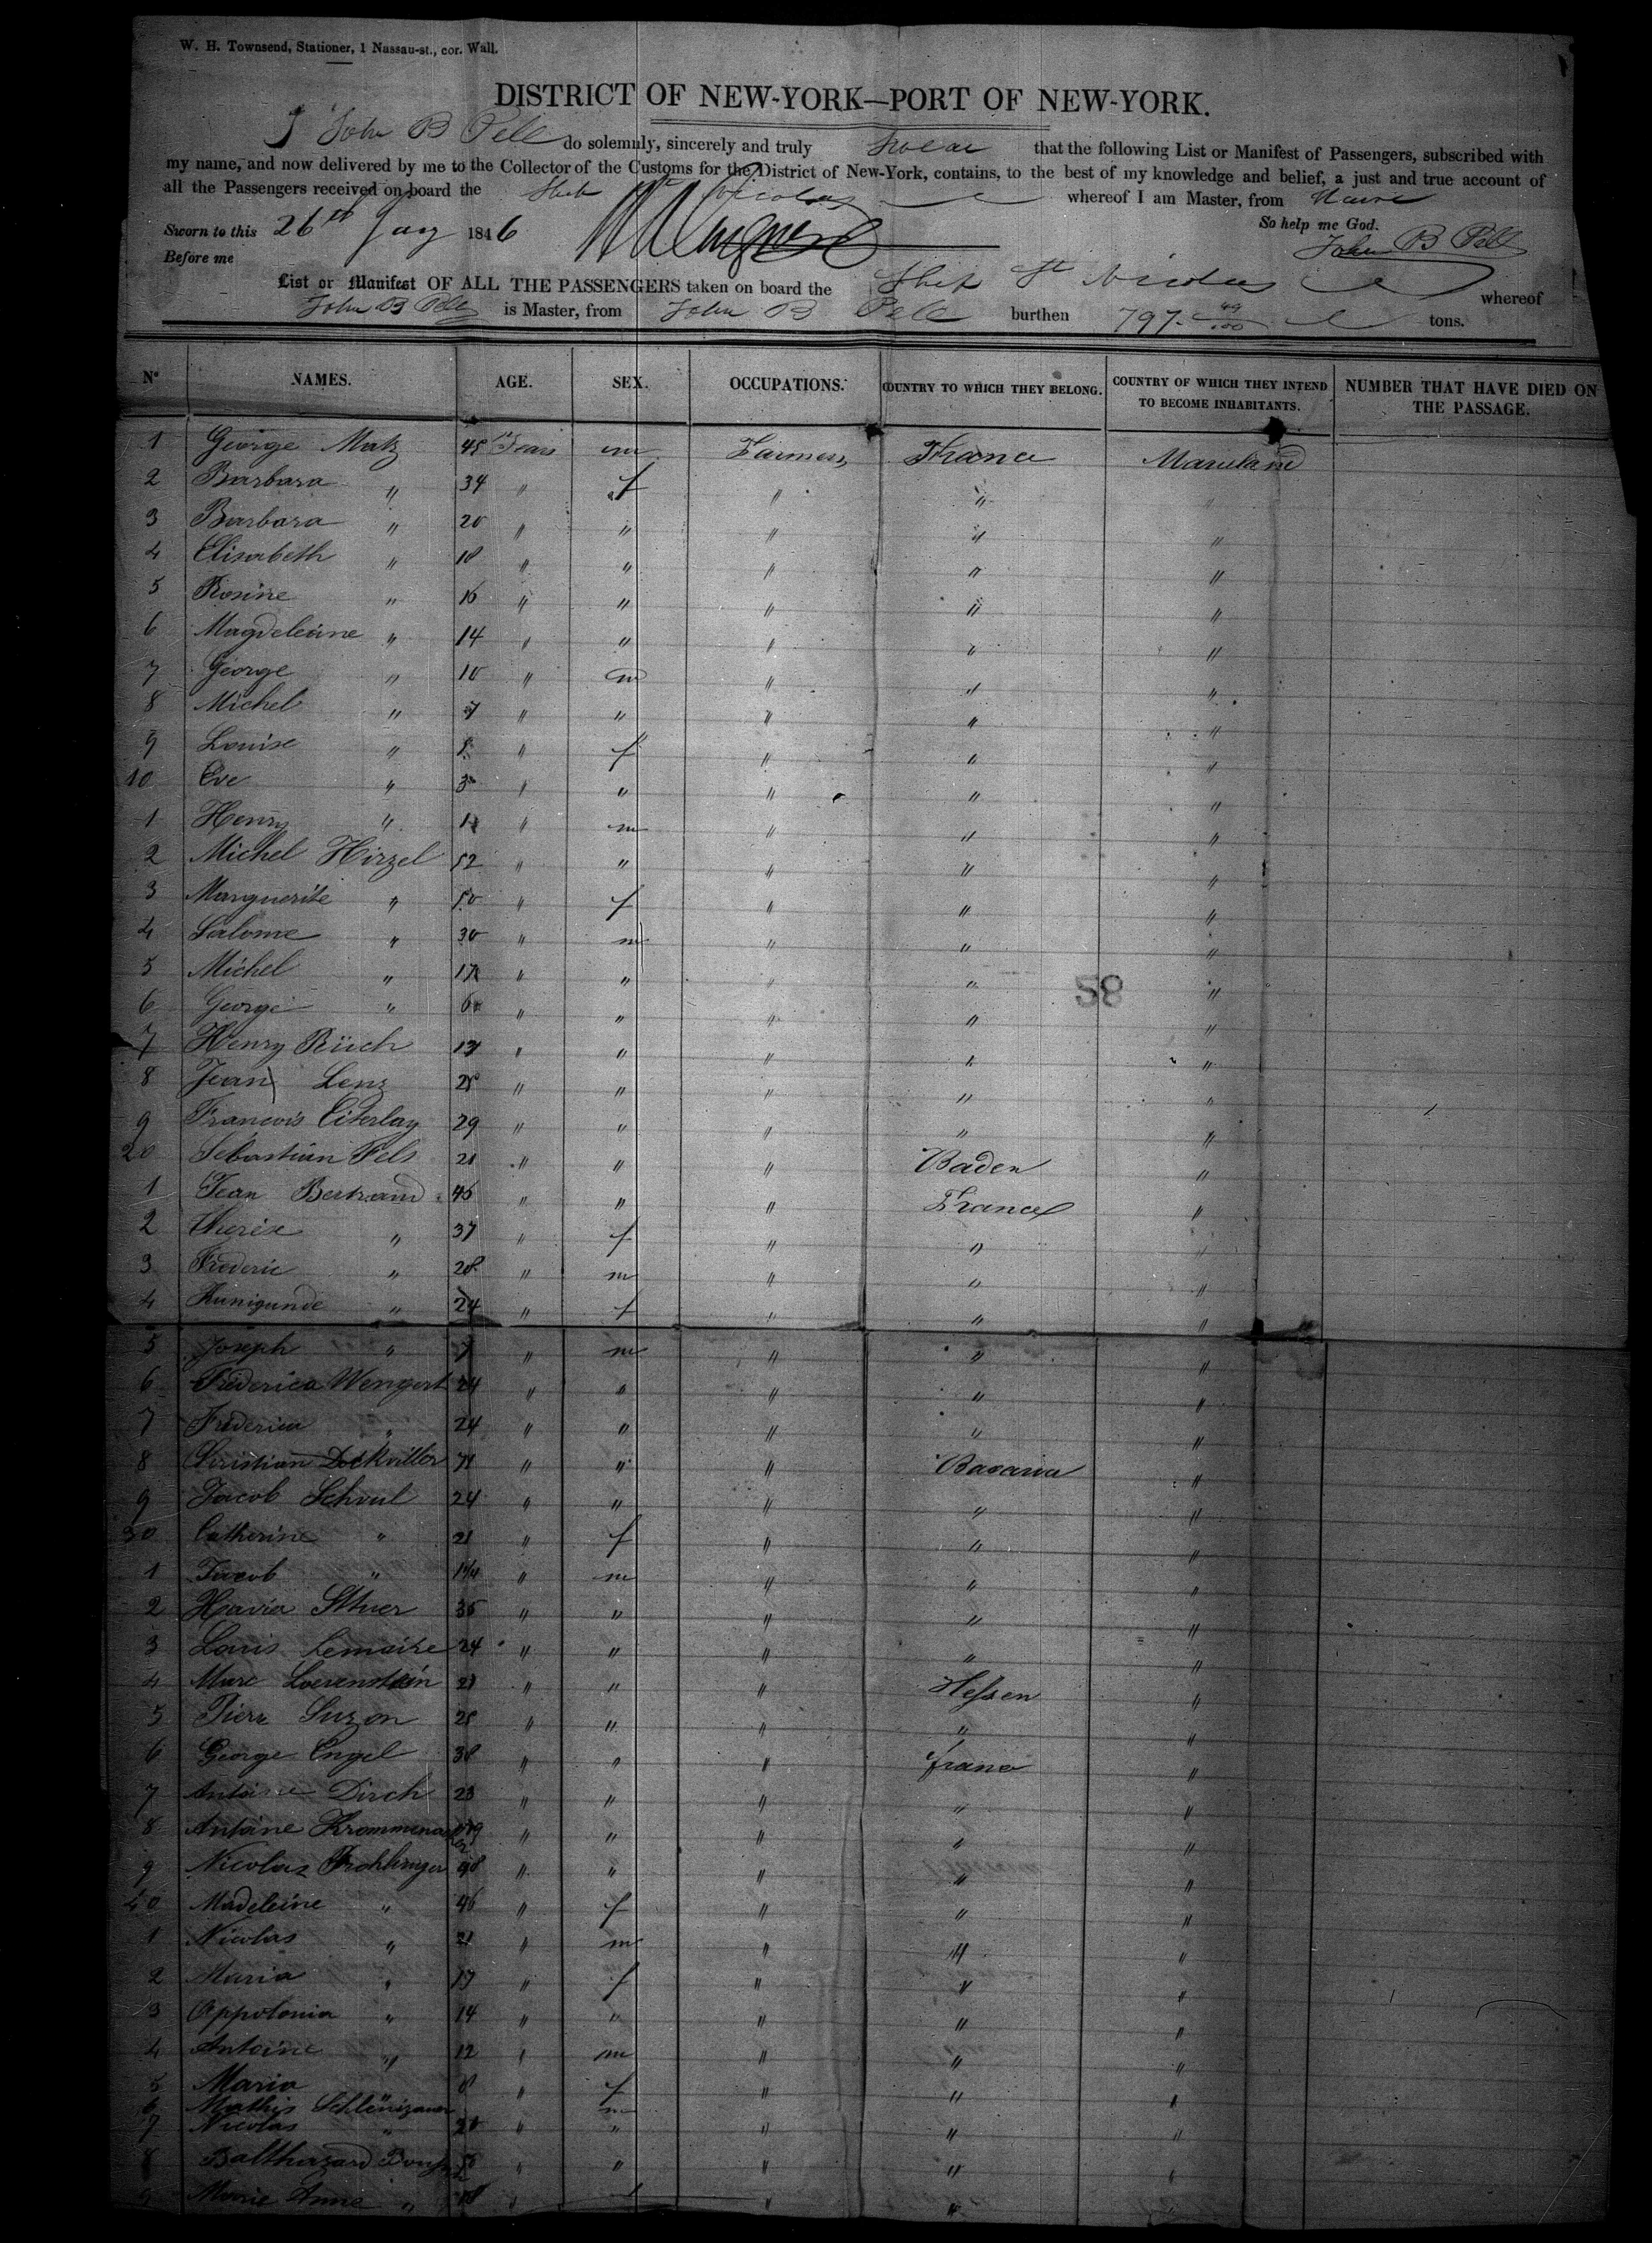 W. H. Townsend, Stationer, 1 Nassau-st., cor. Wall.
DISTRICT OF NEW-YORK—PORT OF NEW-YORK.
I John B Pell do solemnly, sincerely and truly Swear that the following List or Manifest of Passengers, subscribed with
my name, and now delivered by me to the Collector of the Customs for the District of New-York, contains, to the best of my knowledge and belief, a just and true account of
all the Passengers received on board the Ship St Nicolas whereof I am Master, from Havre
So help me God.
Sworn to this 26th Jany 1846 John B Pell
Before me
List or Manifest OF ALL THE PASSENGERS taken on board the Ship St Nicolas whereof
John B Pell is Master, from John B Pell burthen 797 49/100 tons.
No NAMES. AGE. SEX. OCCUPATIONS. COUNTRY TO WHICH THEY BELONG. COUNTRY OF WHICH THEY INTEND TO BECOME INHABITANTS. NUMBER THAT HAVE DIED ON THE PASSAGE.
1 George Matz 45 Years m Farmers France
2 Barbara " 34 " f " "
3 Barbara " 20 " " " " "
4 Elisabeth " 18 " " " " "
5 Rosine " 16 " " " " "
6 Magdeleine " 14 " " " " "
7 George " 10 " m " " "
8 Michel " 7 " " " " "
9 Louise " " f " " "
10 Eve " 3 " " " " "
1 Henry " 1 " m " " "
2 Michel Hirzel 52 " " " " "
3 Marguerite " 50 " f " " "
4 Salome " 30 " m " " "
5 Michel " 17 " " " " "
6 George " " " " " "
7 Henry Rüch " " " " "
8 Jean Lenz 28 " " " " "
9 Francois 29 " " " " "
20 Sebastian Fels 21 " " " Baden "
1 Jean Bertrand 46 " " " France "
2 Therese " 37 " f " " "
3 Frederic " 28 " m " " "
4 Kunigunde " 24 " f " " "
5 Joseph " " m " " "
6 Frederica Wengert 24 " " " " "
7 Frederica " 24 " " " " "
8 " " " Bavaria "
9 Jacob Schoul 24 " " " " "
30 Catherine " 21 " f " " "
1 Jacob " " m " " "
2 35 " " " " "
3 Louis Lemaire 24 " " " " "
4 Marc Loevenstein " " " Hessen "
5 Pierre Suzon 28 " " " " "
6 George Engel 38 " " " France "
7 Antoine Dirch 23 " " " " "
8 Antoine Krommenacker " " " " "
9 Nicolas Frohlinger 48 " " " " "
40 Madeleine " 46 " f " " "
1 Nicolas " 21 " m " " "
2 Maria " 17 " f " " "
3 Appolonia " 14 " " " " "
4 Antoine " 12 " m " " "
5 Maria 8 " f " " "
6 Mathis m
7 Nicolas " " " " " "
8 Balthazard " " " " "
9 Marie Anne " " " " "
58